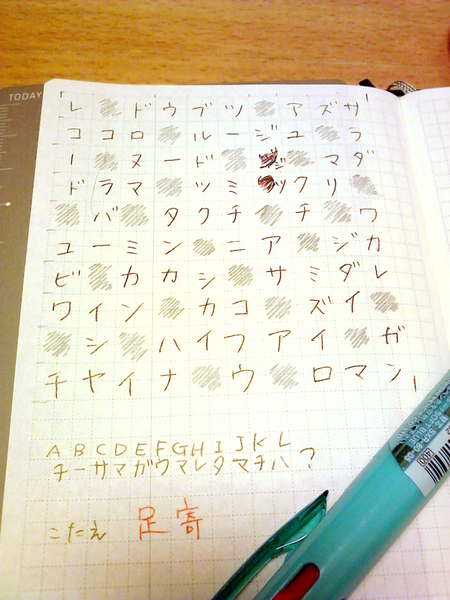 TODAY
レ ドウブツ アズサ
ココロ ルージュ ラ
ー ヌード マダ
ドラマ ツミツクリ
バ タクチ チ ワ
ユーミン ニア ジカ
ビ カカシ サミダレ
ワイン カコ ズイ
シ ハイフアイ ガ
チヤイナ ウ ロマン
A B C D E F G H I J K L
チーサマガウマレタマチハ?
こたえ 足寄